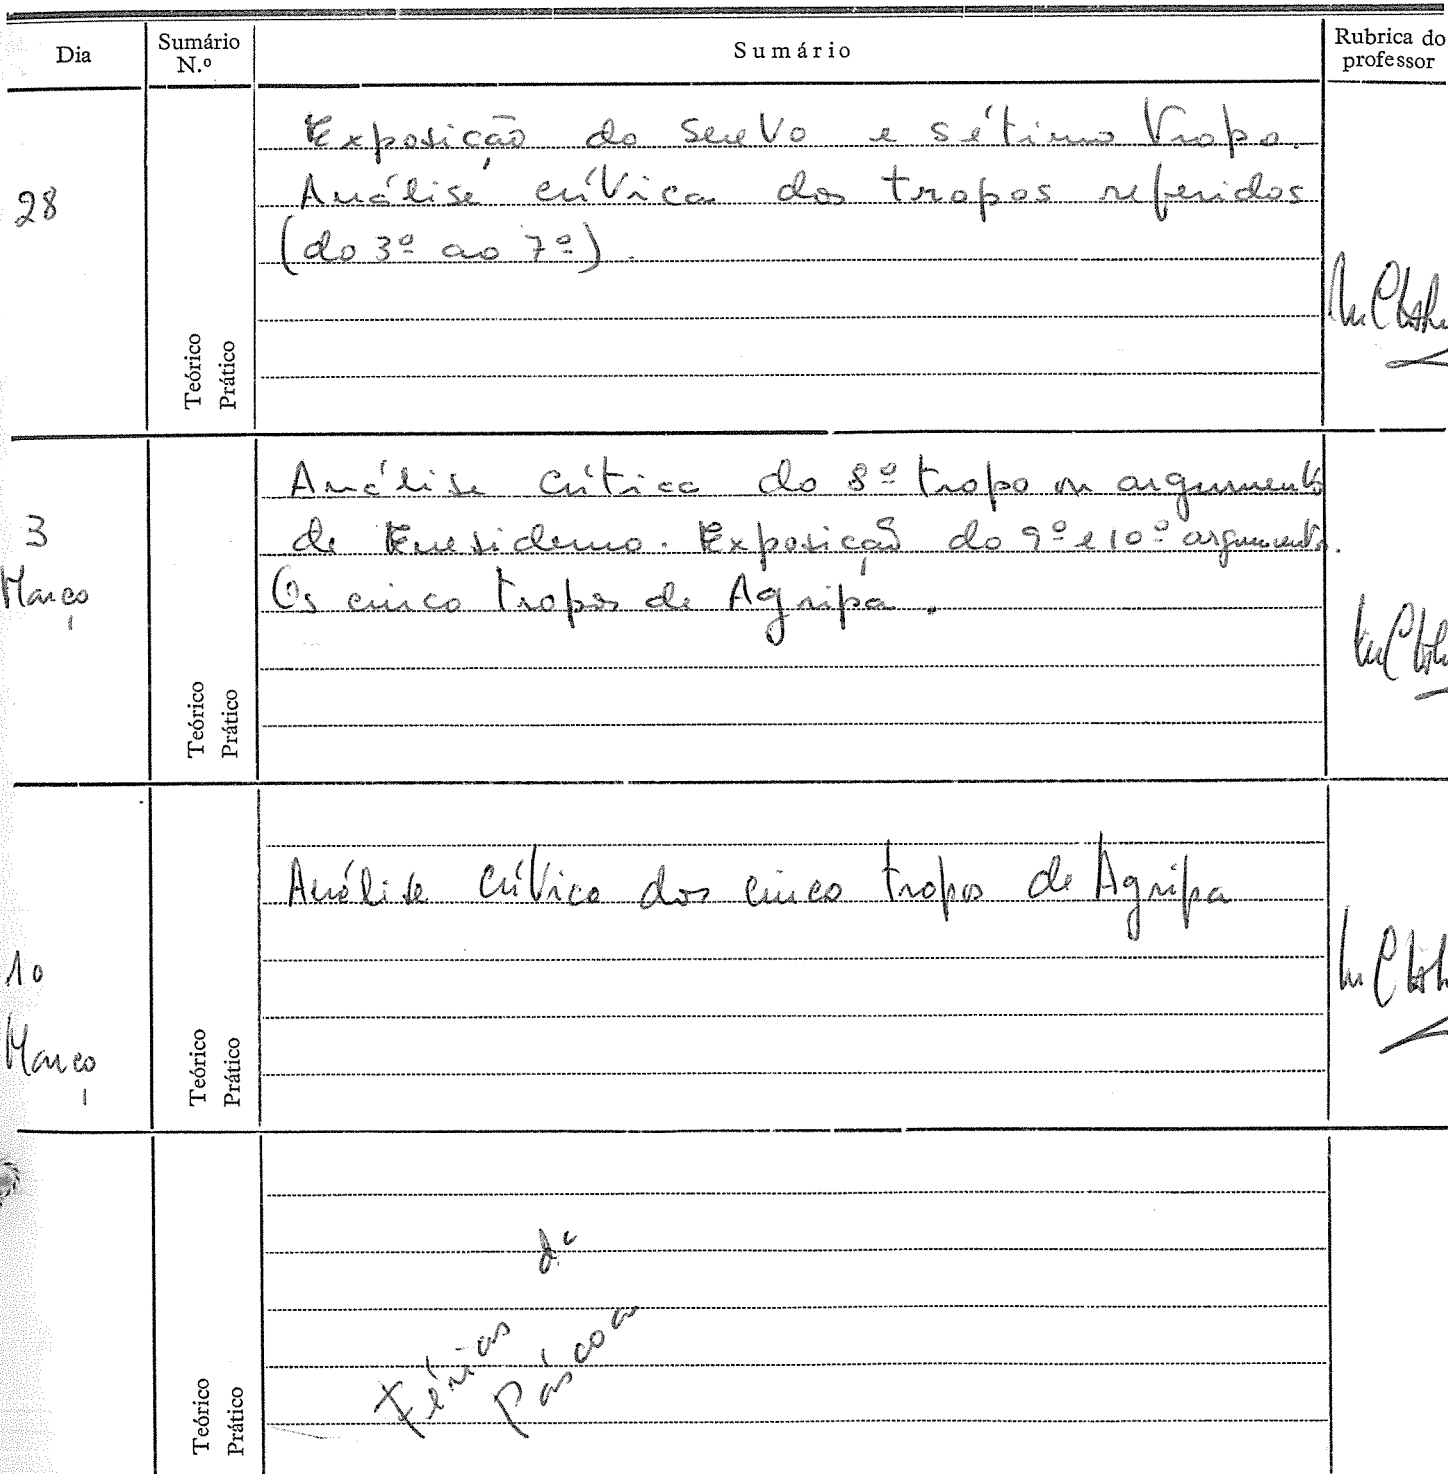 Dia
Sumário
N.º
Sumário
Rubrica do
professor
28
Exposição do sexto e sétimo tropo.
Análise crítica dos tropos referidos
(do 3º ao 7º).
Teórico
Prático
3
Março
Análise crítica do 8º tropo ou argumento
de Enesidemo. Exposição do 9º e 10º argumento.
Os cinco tropos de Agripa.
Teórico
Prático
10
Março
Análise crítica dos cinco tropos de Agripa
Teórico
Prático
Férias da
Páscoa
Teórico
Prático